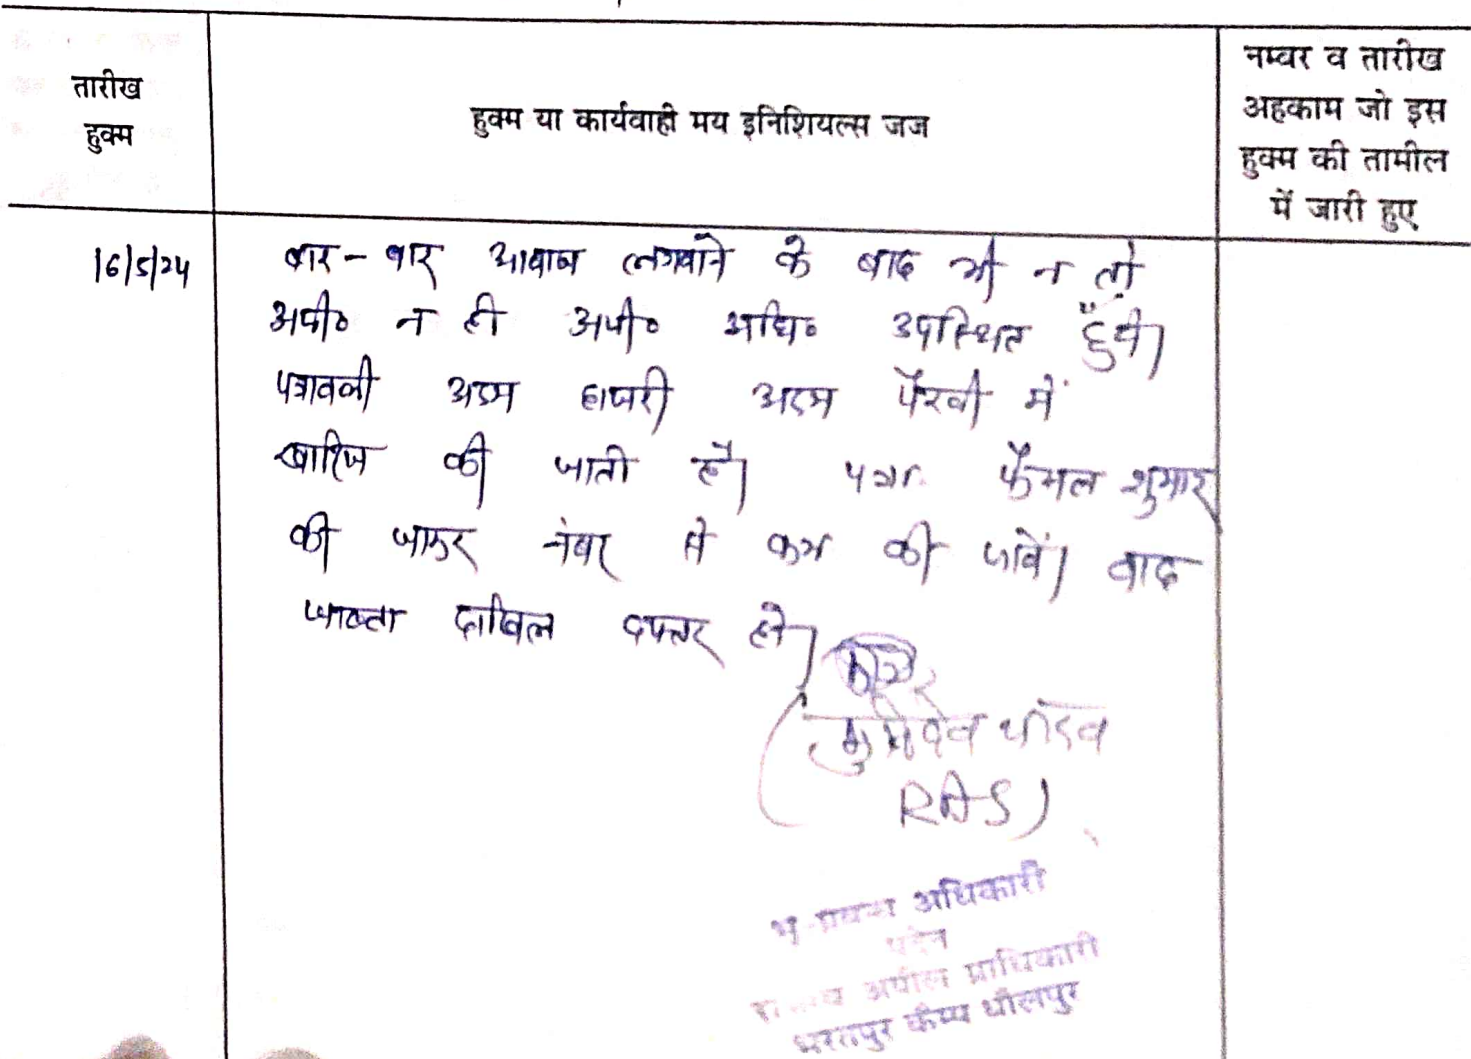 तारीख
हुक्म
हुक्म या कार्यवाही मय इनिशियल्स जज
नम्बर व तारीख
अहकाम जो इस
हुक्म की तामील
में जारी हुए
16/5/24
बार-बार आवाज लगवाने के बाद भी न तो
अपी० न ही अपी० अधि० उपस्थित हुये।
पत्रावली अदम हाजरी अदम पैरवी में
खारिज की जाती है। पत्रा. फैसल शुमार
की जाकर नंबर से कम की जावें। बाद
जाब्ता दाखिल दफ्तर हो।
यादव
RAS)
भू-प्रबन्ध अधिकारी
पदेन
राजस्व अपील प्राधिकारी
भरतपुर कैम्प धौलपुर